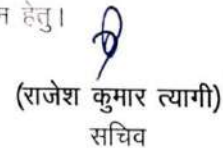 हेतु।
(राजेश कुमार त्यागी)
सचिव